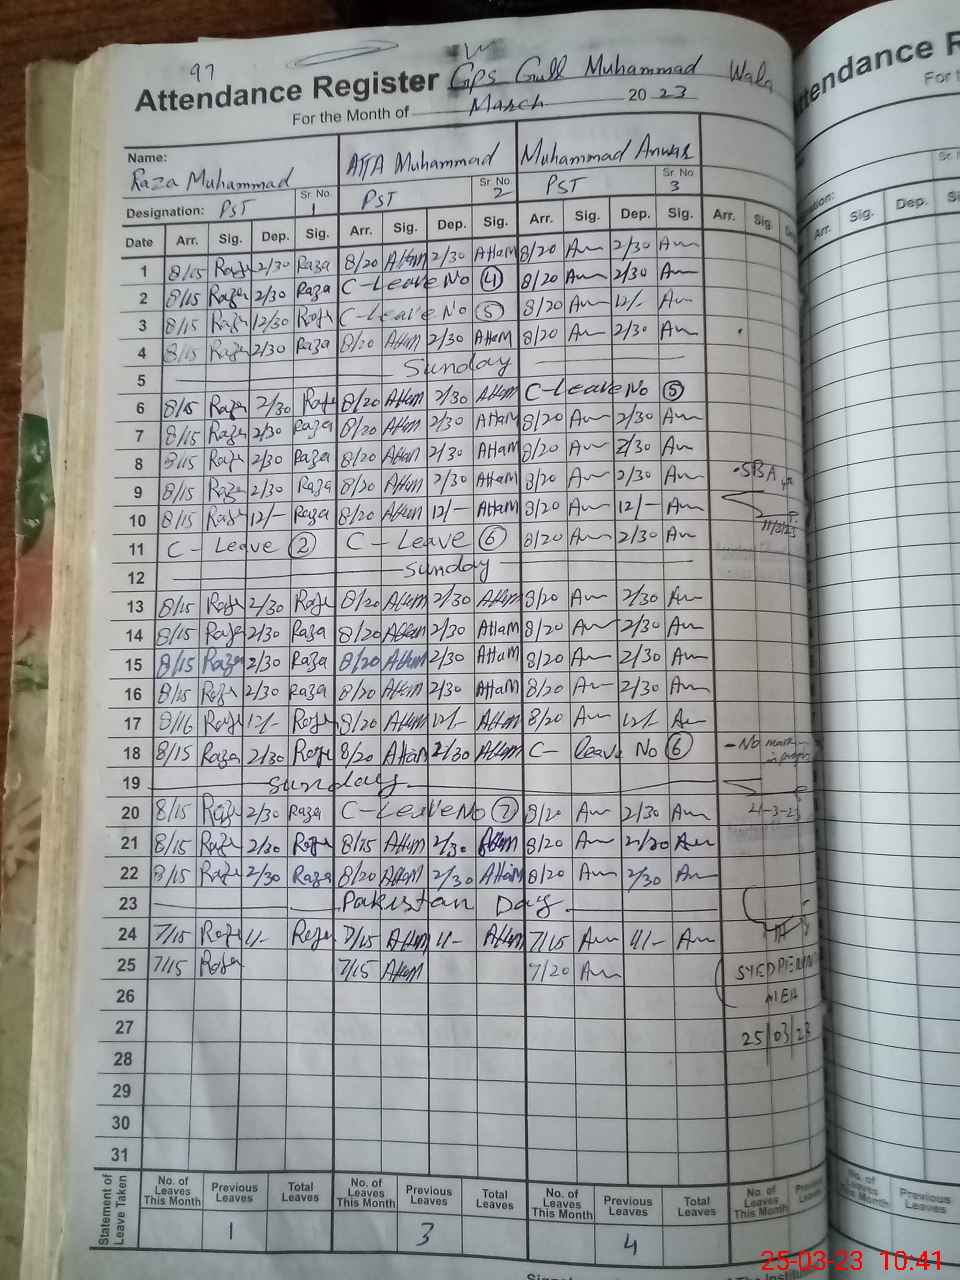 97
Attendance Register GPS Gull Muhammad Wala
For the Month of March 2023
Name: Raza Muhammad ATTA Muhammad Muhammad Anwar
Designation: PST Sr. No. 1 PST Sr. No. 2 PST Sr. No. 3
Date Arr. Sig. Dep. Sig. Arr. Sig. Dep. Sig. Arr. Sig. Dep. Sig. Arr. Sig.
1 8/15 Raza 2/30 Raza 8/20 Attam 2/30 AttaM 8/20 An 2/30 An
2 8/15 Raza 2/30 Raza C-Leave No 4 8/20 An 2/30 An
3 8/15 Raza 12/30 Raza C-Leave No 5 8/20 An 12/- An
4 8/15 Raza 2/30 Raza 8/20 Attam 2/30 AttaM 8/20 An 2/30 An
5 Sunday
6 8/15 Raza 2/30 Raza 8/20 Attam 2/30 Attam C-Leave No 5
7 8/15 Raza 2/30 Raza 8/20 Attam 2/30 AttaM 8/20 An 2/30 An
8 8/15 Raza 2/30 Raza 8/20 Attam 2/30 AttaM 8/20 An 2/30 An
9 8/15 Raza 2/30 Raza 8/20 Attam 2/30 AttaM 8/20 An 2/30 An SBA
10 8/15 Raza 12/- Raza 8/20 Attam 12/- AttaM 8/20 An 12/- An 11/3/23
11 C- Leave 2 C- Leave 6 8/20 An 2/30 An
12 Sunday
13 8/15 Raza 2/30 Raza 8/20 Attam 2/30 Attam 8/20 An 2/30 An
14 8/15 Raza 2/30 Raza 8/20 Attam 2/30 AttaM 8/20 An 2/30 An
15 8/15 Raza 2/30 Raza 8/20 Attam 2/30 AttaM 8/20 An 2/30 An
16 8/15 Raza 2/30 Raza 8/20 Attam 2/30 AttaM 8/20 An 2/30 An
17 8/16 Raza 12/- Raza 8/20 Attam 12/- Attam 8/20 An 12/- An
18 8/15 Raza 2/30 Raza 8/20 Attam 2/30 Attam C- leave No 6 - No
19 Sunday
20 8/15 Raza 2/30 Raza C-Leave No 7 8/20 An 2/30 An 21-3-23
21 8/15 Raza 2/30 Raza 8/25 Attam 2/30 Attam 8/20 An 2/20 An
22 8/15 Raza 2/30 Raza 8/20 AttaM 2/30 AttaM 8/20 An 2/30 An
23 Pakistan Day
24 7/15 Raza 11/- Raza 7/15 Attam 11/- Attam 7/15 An 11/- An
25 7/15 Raza 7/15 Attam 7/20 An
26
27 25/03/23
28
29
30
31
Statement of Leave Taken
No. of Leaves This Month Previous Leaves Total Leaves No. of Leaves This Month Previous Leaves Total Leaves No. of Leaves This Month Previous Leaves Total Leaves No. of Leaves This Month
1 3 4
Arr. Sig. Dep.
No. of Leaves This Month Previous Leaves
25-03-23 10:41